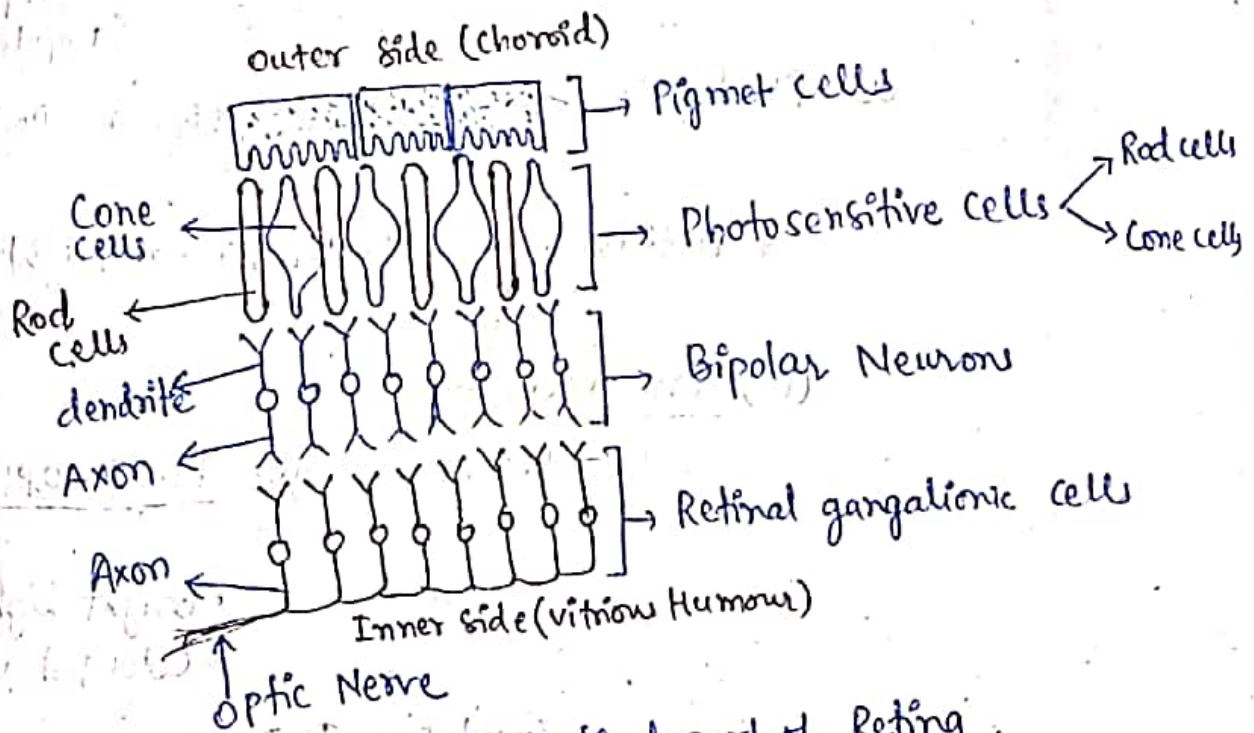 Outer side (Choroid)
Pigmet cells
Rod cells
Photosensitive cells
Cone cells
Cone
cells
Rod
cells
dendrite
Bipolar Neurons
Axon
Retinal gangalionic cells
Axon
Inner side (vitrious Humour)
Optic Nerve
Retina